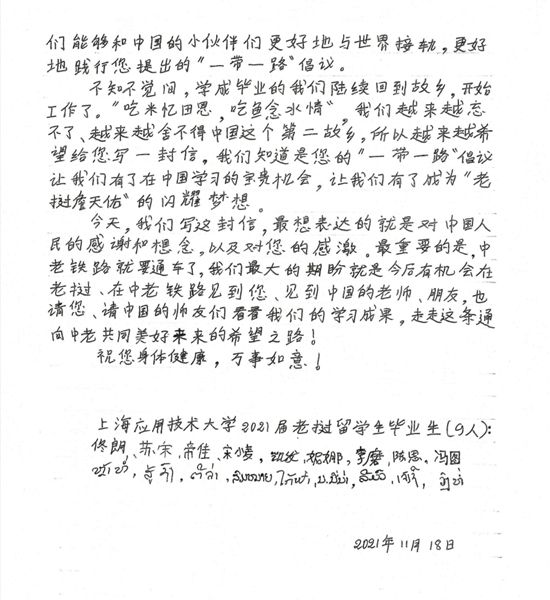 们能够和中国的小伙伴们更好地与世界接轨，更好
地践行您提出的“一带一路”倡议。
不知不觉间，学成毕业的我们陆续回到故乡，开始
工作了。“吃米忆田恩，吃鱼念水情”，我们越来越忘
不了、越来越舍不得中国这个第二故乡，所以越来越希
望给您写一封信。我们知道是您的“一带一路”倡议
让我们有了在中国学习的宝贵机会，让我们有了成为“老
挝詹天佑”的闪耀梦想。
今天，我们写这封信，最想表达的就是对中国人
民的感谢和想念，以及对您的感激。最重要的是，中
老铁路就要通车了，我们最大的期盼就是今后有机会在
老挝、在中老铁路见到您、见到中国的老师、朋友，也
请您、请中国的师友们看看我们的学习成果，走走这条通
向中老共同美好未来的希望之路！
祝您身体健康，万事如意！
上海应用技术大学2021届老挝留学生毕业生（9人）：
佟朗、苏宋、帝佳、宋小凌，妮娜，李磨，陈思，冯图
2021年11月18日